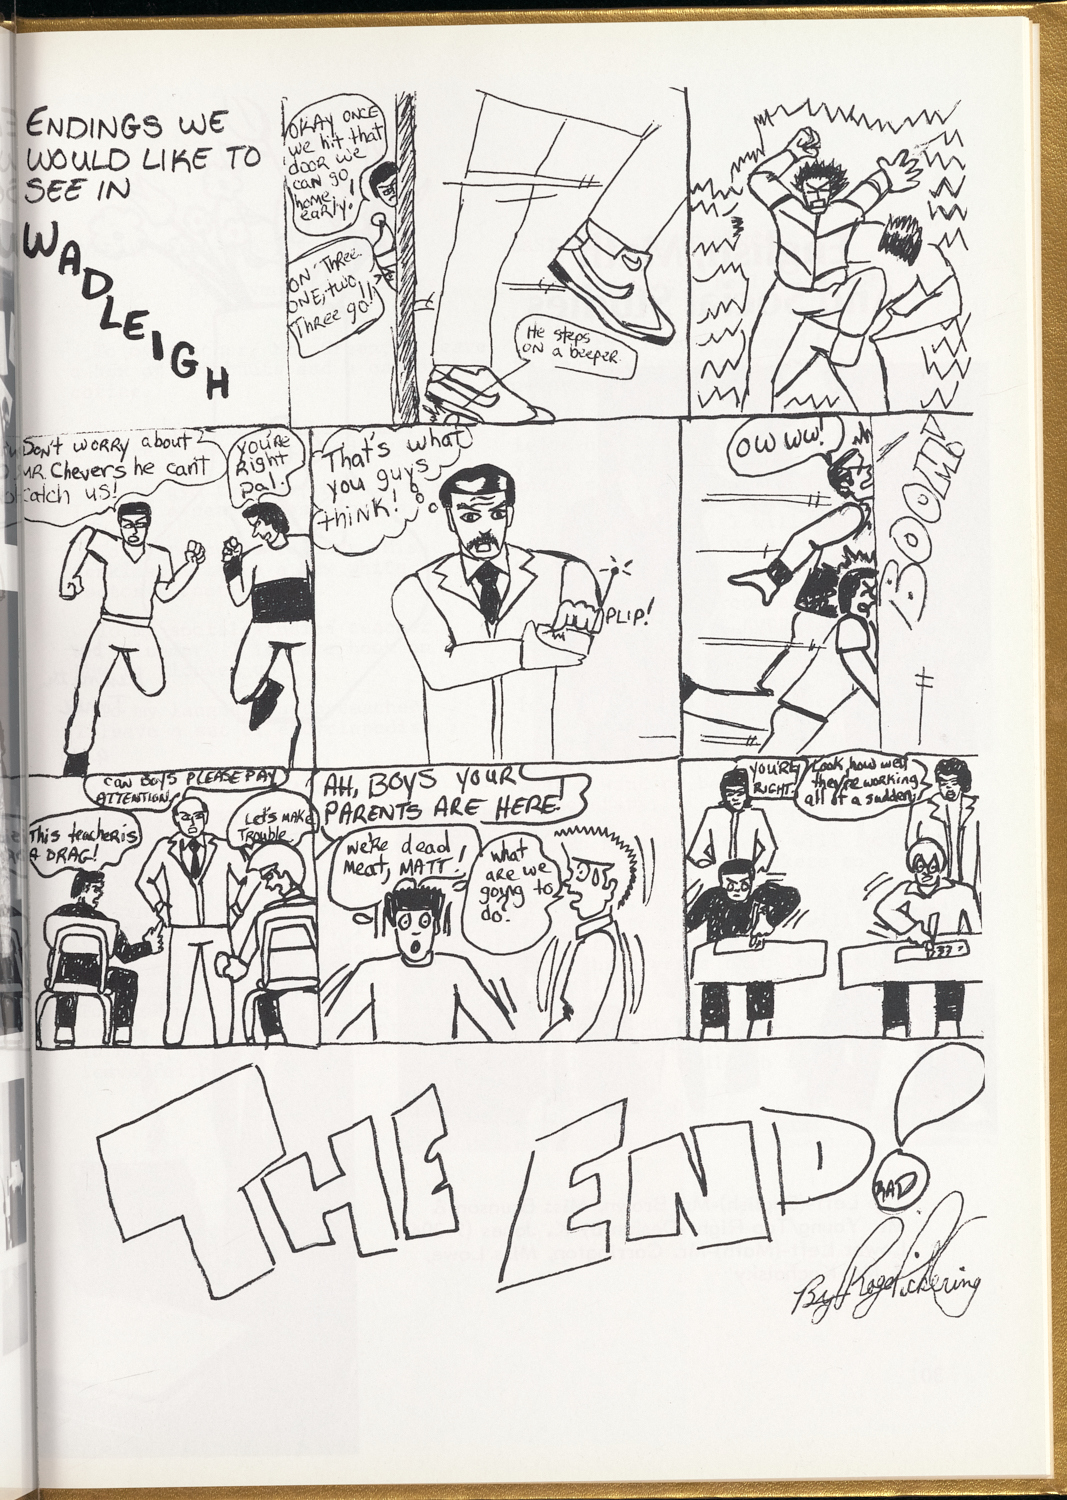 ENDINGS WE
WOULD LIKE TO
SEE IN
WADLEIGH
OKAY ONCE
we hit that
door we
can go
home
early!
ON Three.
ONE, two,
Three go!
He steps
ON a beeper.
Don't worry about
MR. Chevers he can't
catch us!
you're
Right
pal.
That's what
you guys
think!
PLIP!
OW WW!
BOOM!
CAN BOYS PLEASE PAY
ATTENTION!
This teacher is
A DRAG!
Let's make
Trouble
AH, BOYS YOUR
PARENTS ARE HERE.
we're dead
meat, MATT!
what
are we
going to
do.
YOU'RE
RIGHT.
Look how well
they're working
all of a sudden!
THE END!
RAD
By Roge Pickering